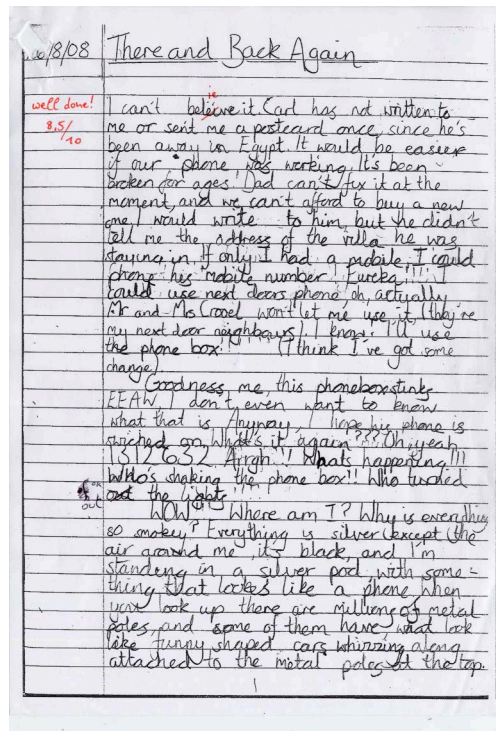 /8/08 There and Back Again
well done!
8,5/10
ie
I can't beleive it. Carl has not written to
me or sent me a postcard once, since he's
been away in Egypt. It would be easier
if our 'phone was working. It's been
broken for ages. Dad can't fix it at the
moment, and we can't afford to buy a new
one. I would write to him, but he didn't
tell me the address of the villa he was
staying in. If only I had a mobile, I could
phone his mobile number! Eureka!!!! I
could use next doors phone, oh, actually
Mr and Mrs won't let me use it (they're
my next door neighbours). I know! I'll use
the phone box!! (I think I've got some
change).
Goodness me, this phonebox stinks
EEAW I don't even want to know
what that is. Anyway, I hope his phone is
swiched on. What's it again??? Oh, yeah
1312632 Arrgh!! Whats happening!!!
Who's shaking the phone box!! Who turned
out the lights
WOW!! Where am I? Why is everything
so smokey? Everything is silver except the
air around me, it's black, and I'm
standing in a silver pod with some-
thing that looks like a phone when
you look up there are millions of metal
poles, and some of them have, what look
like funny shaped cars whirring along
attached to the metal poles at the top.
1